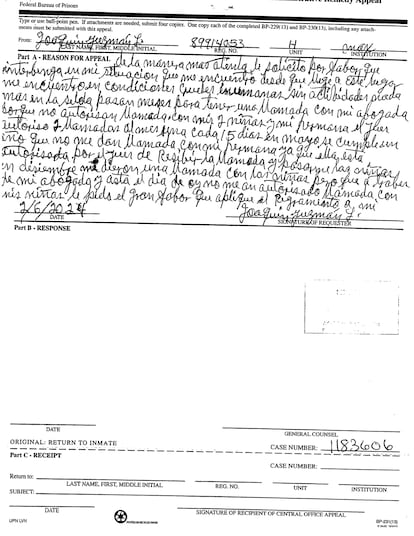 Federal Bureau of Prisons
Remedy Appeal
Type or use ball-point pen. If attachments are needed, submit four copies. One copy each of the completed BP-229(13) and BP-230(13), including any attach-
ments must be submitted with this appeal.
From: Joaquin Guzman L. 89914053 H max
LAST NAME, FIRST, MIDDLE INITIAL REG. NO. UNIT INSTITUTION
Part A - REASON FOR APPEAL de la manera mas atenta le solicito por fabor que
interbenga en mi situacion que me encuentro desde que llege a este lugar
me encuentro en condiciones inumanas sin actibidades nada
mas en la selda pasan meses para tener una llamada con mi abogada
por que no autorisan llamada con mis 2 niñas y mi hermana el Juez
autoriso 2 llamadas al mes una cada 15 dias en mayo se cumple un
año que no me dan llamada con mi hermana ya que ella esta
autorisada por el Juez de Resibir la llamada y pasarme las niñas
en disiembre me dieron una llamada con las niñas pero fue a traber
de mi abogada y asta el dia de oy no me an autorisado llamada con
mis niñas le pido el gran fabor que aplique el Rigramento a mi
2/6/2024 Joaquin Guzman L.
DATE SIGNATURE OF REQUESTER
Part B - RESPONSE
DATE GENERAL COUNSEL
ORIGINAL: RETURN TO INMATE CASE NUMBER: 1183606
Part C - RECEIPT
CASE NUMBER:
Return to:
LAST NAME, FIRST, MIDDLE INITIAL REG. NO. UNIT INSTITUTION
SUBJECT:
DATE SIGNATURE OF RECIPIENT OF CENTRAL OFFICE APPEAL
UPN LVN BP-231(13)